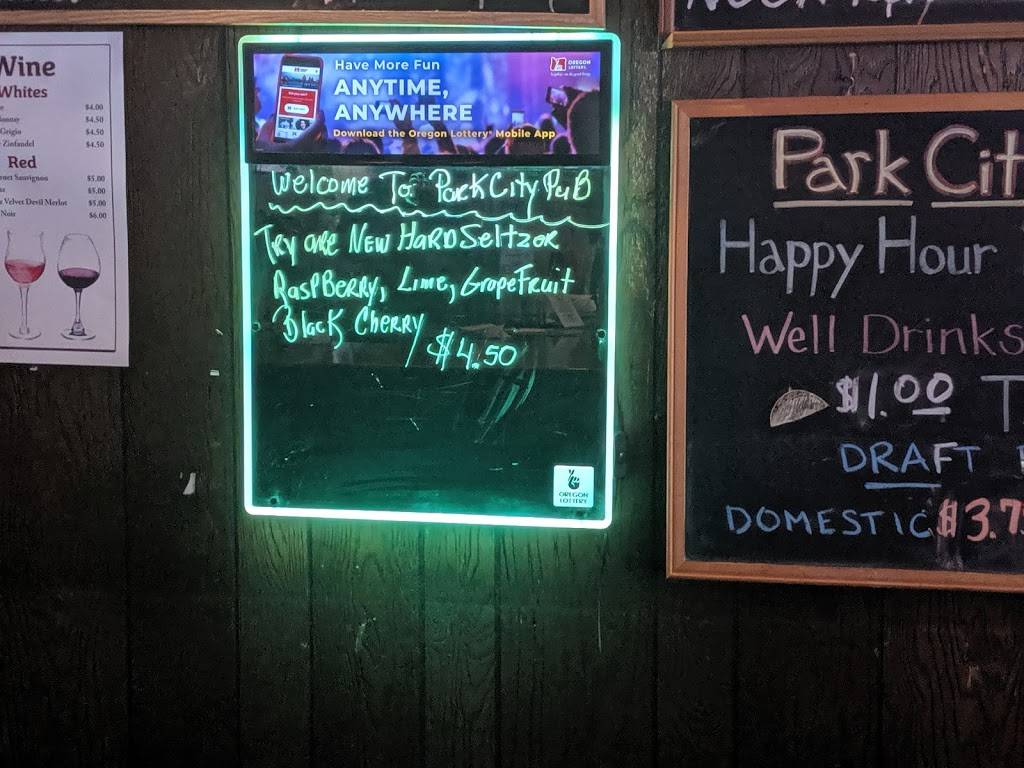 Wine
Whites
$4.00
$4.50
Grigio $4.50
Zinfandel $4.50
Red
Sauvignon $5.00
$5.00
Velvet Devil Merlot $5.00
Noir $6.00
Have More Fun
ANYTIME,
ANYWHERE
Download the Oregon Lottery® Mobile App
OREGON
LOTTERY
Welcome To Park City PuB
Try are New Hard Seltzer
RaspBerry, Lime, GrapeFruit
Black Cherry
$4.50
OREGON
LOTTERY
Park
Happy Hour
Well Drinks
$1.00
DRAFT
DOMESTIC